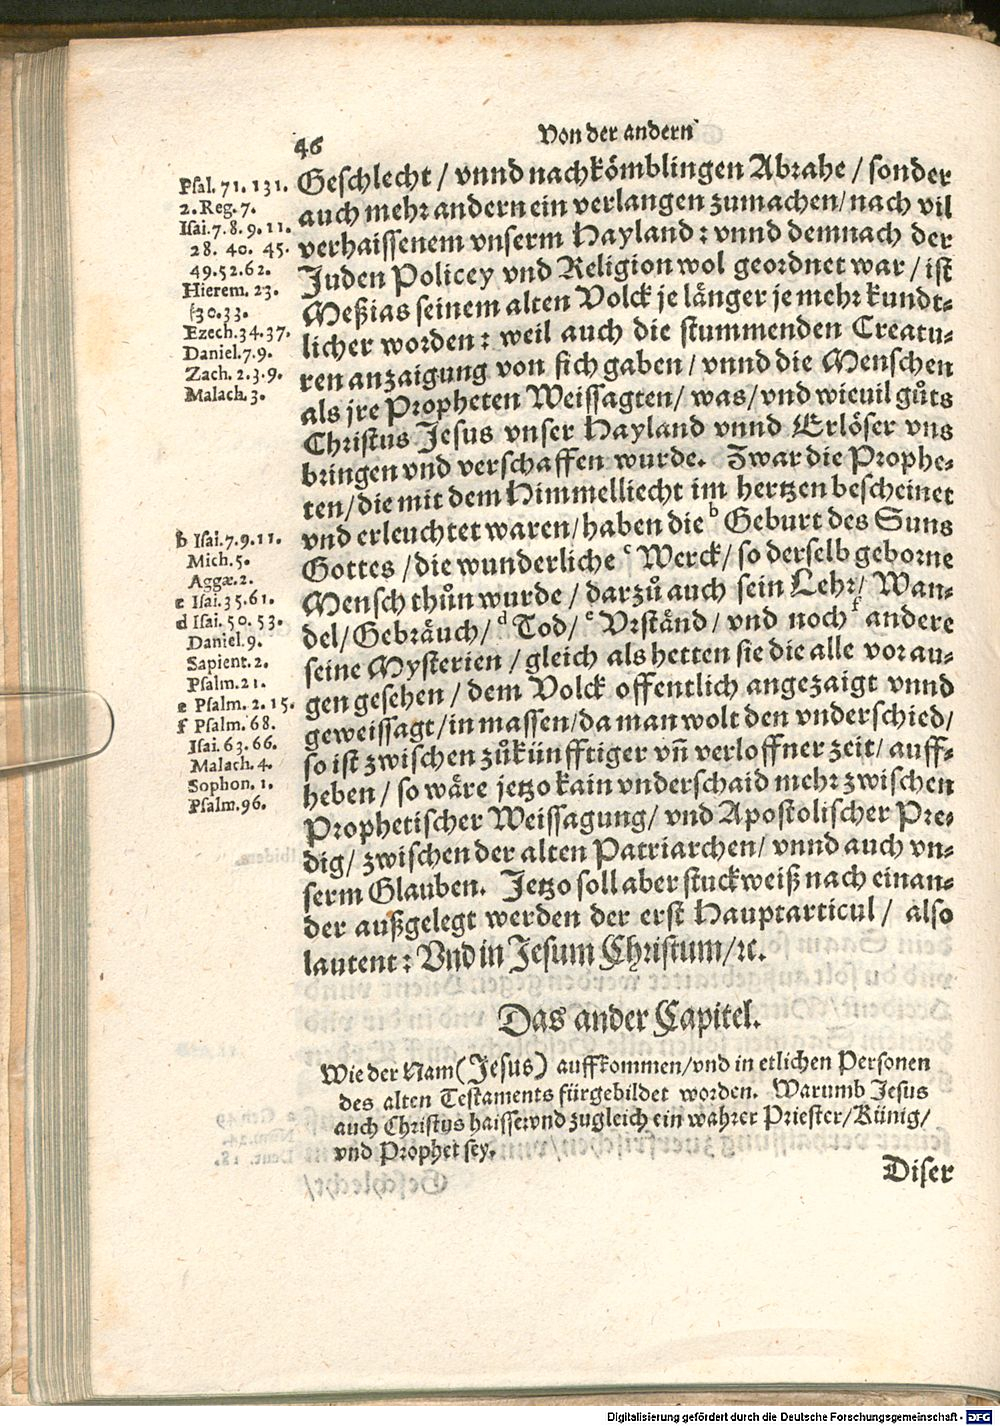 46
Von der andern
Geschlecht / vnnd nachkömblingen Abrahe / sonder
auch mehr andern ein verlangen zumachen / nach vil
verhaissenem vnserm Hayland : vnnd demnach der
Juden Policey vnd Religion wol geordnet war / ist
Meßias seinem alten Volck je länger je mehr kundt-
licher worden : weil auch die stummenden Creatu-
ren anzaigung von sich gaben / vnnd die Menschen
als jre Propheten Weissagten / was / vnd wieuil gůts
Christus Jesus vnser Hayland vnnd Erlöser vns
bringen vnd verschaffen wurde. Zwar die Prophe-
ten / die mit dem Himmelliecht im hertzen bescheinet
vnd erleuchtet waren / haben die b Geburt des Suns
Gottes / die wunderliche c Werck / so derselb geborne
Mensch thůn wurde / darzů auch sein Lehr / Wan-
del / Gebräuch / d Tod / e Vrständ / vnd noch f andere
seine Mysterien / gleich als hetten sie die alle vor au-
gen gesehen / dem Volck offentlich angezaigt vnnd
geweissagt / in massen / da man wolt den vnderschied /
so ist zwischen zůkünfftiger vñ verloffner zeit / auff-
heben / so wäre jetzo kain vnderschaid mehr zwischen
Prophetischer Weissagung / vnd Apostolischer Pre-
dig / zwischen der alten Patriarchen / vnnd auch vn-
serm Glauben. Jetzo soll aber stuckweiß nach einan-
der außgelegt werden der erst Hauptarticul / also
lautent : Vnd in Jesum Christum / ꝛc.
Das ander Capitel.
Wie der Nam (Jesus) auffkommen / vnd in etlichen Personen
des alten Testaments fürgebildet worden. Warumb Jesus
auch Christus haisse: vnd zugleich ein wahrer Priester / Künig /
vnd Prophet sey.
Diser
Psal. 71. 131.
2. Reg. 7.
Isai. 7. 8. 9. 11.
28. 40. 45.
49. 52. 62.
Hierem. 23.
30. 33.
Ezech. 34. 37.
Daniel. 7. 9.
Zach. 2. 3. 9.
Malach. 3.
b Isai. 7. 9. 11.
Mich. 5.
Aggæ. 2.
c Isai. 35. 61.
d Isai. 50. 53.
Daniel. 9.
Sapient. 2.
Psalm. 21.
e Psalm. 2. 15.
f Psalm. 68.
Isai. 63. 66.
Malach. 4.
Sophon. 1.
Psalm. 96.
Digitalisierung gefördert durch die Deutsche Forschungsgemeinschaft - DFG